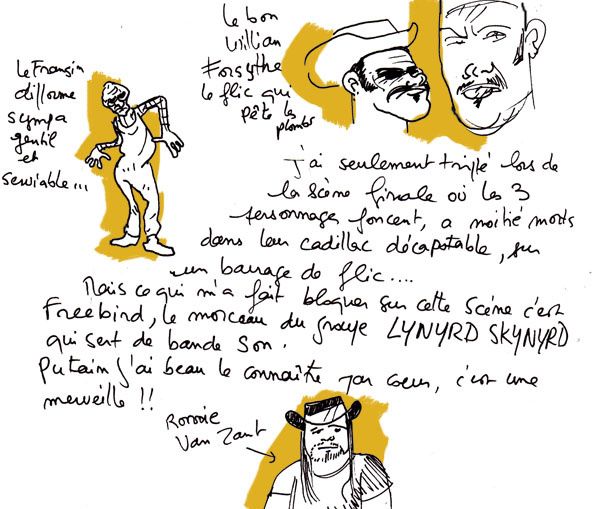 le Frangin
difforme
sympa
gentil
et
serviable...
le bon
Willian
Forsythe
le flic qui
pète les
plombs
J'ai seulement trippé lors de
la scène finale où les 3
personnages foncent, a moitié morts
dans leur cadillac décapotable, sur
un barrage de flic....
Mais ce qui m'a fait bloquer sur cette scène c'est
Freebird, le morceau du groupe LYNYRD SKYNYRD
qui sert de bande son.
Putain j'ai beau le connaître par coeur, c'est une
merveille !!
Ronnie
Van Zant